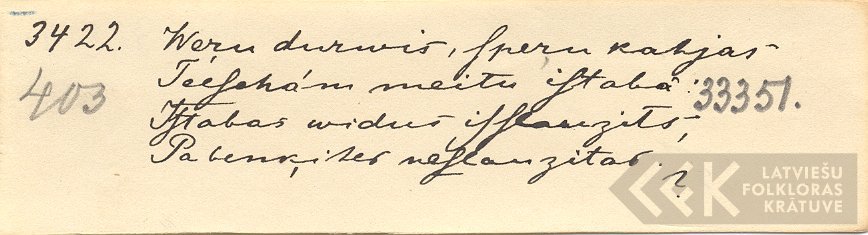 3422. Weŗu durwis, ſpeŗu kahjas
403 Teeſcham meitu iſtabâ: 33351.
Iſtabas widus iſſlauzits,
Pabenķiter neſlauzitas.
?
LATVIEŠU
FOLKLORAS
KRĀTUVE